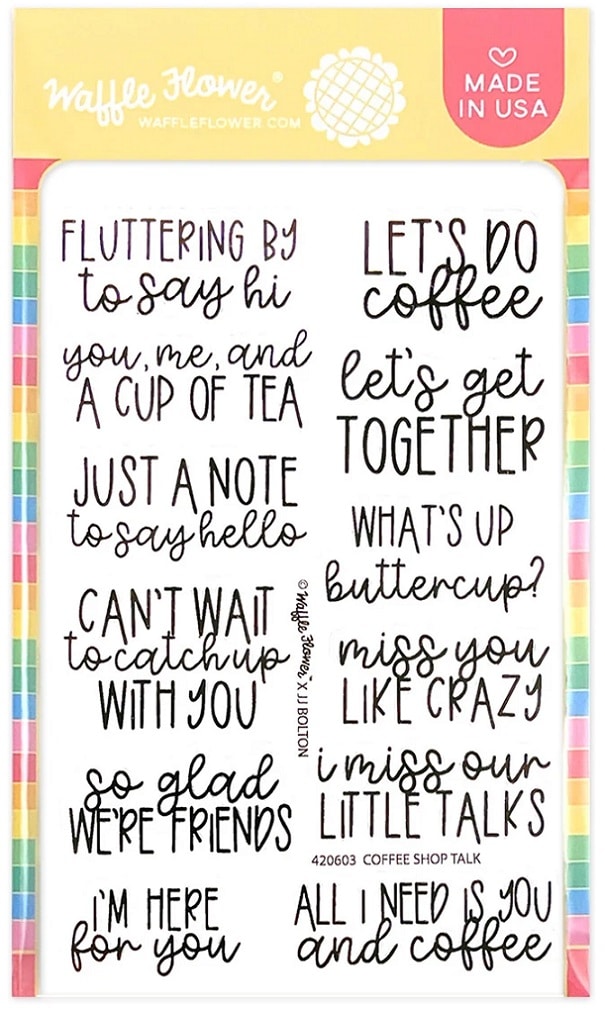 Waffle Flower®
WAFFLEFLOWER.COM
MADE
IN USA
FLUTTERING BY
to say hi
you, me, and
A CUP OF TEA
JUST A NOTE
to say hello
CAN'T WAIT
to catch up
WITH YOU
so glad
WE'RE FRIENDS
I'M HERE
for you
LET'S DO
coffee
let's get
TOGETHER
WHAT'S UP
buttercup?
miss you
LIKE CRAZY
i miss our
LITTLE TALKS
420603 COFFEE SHOP TALK
ALL I NEED IS YOU
and coffee
© Waffle Flower® X JJ BOLTON